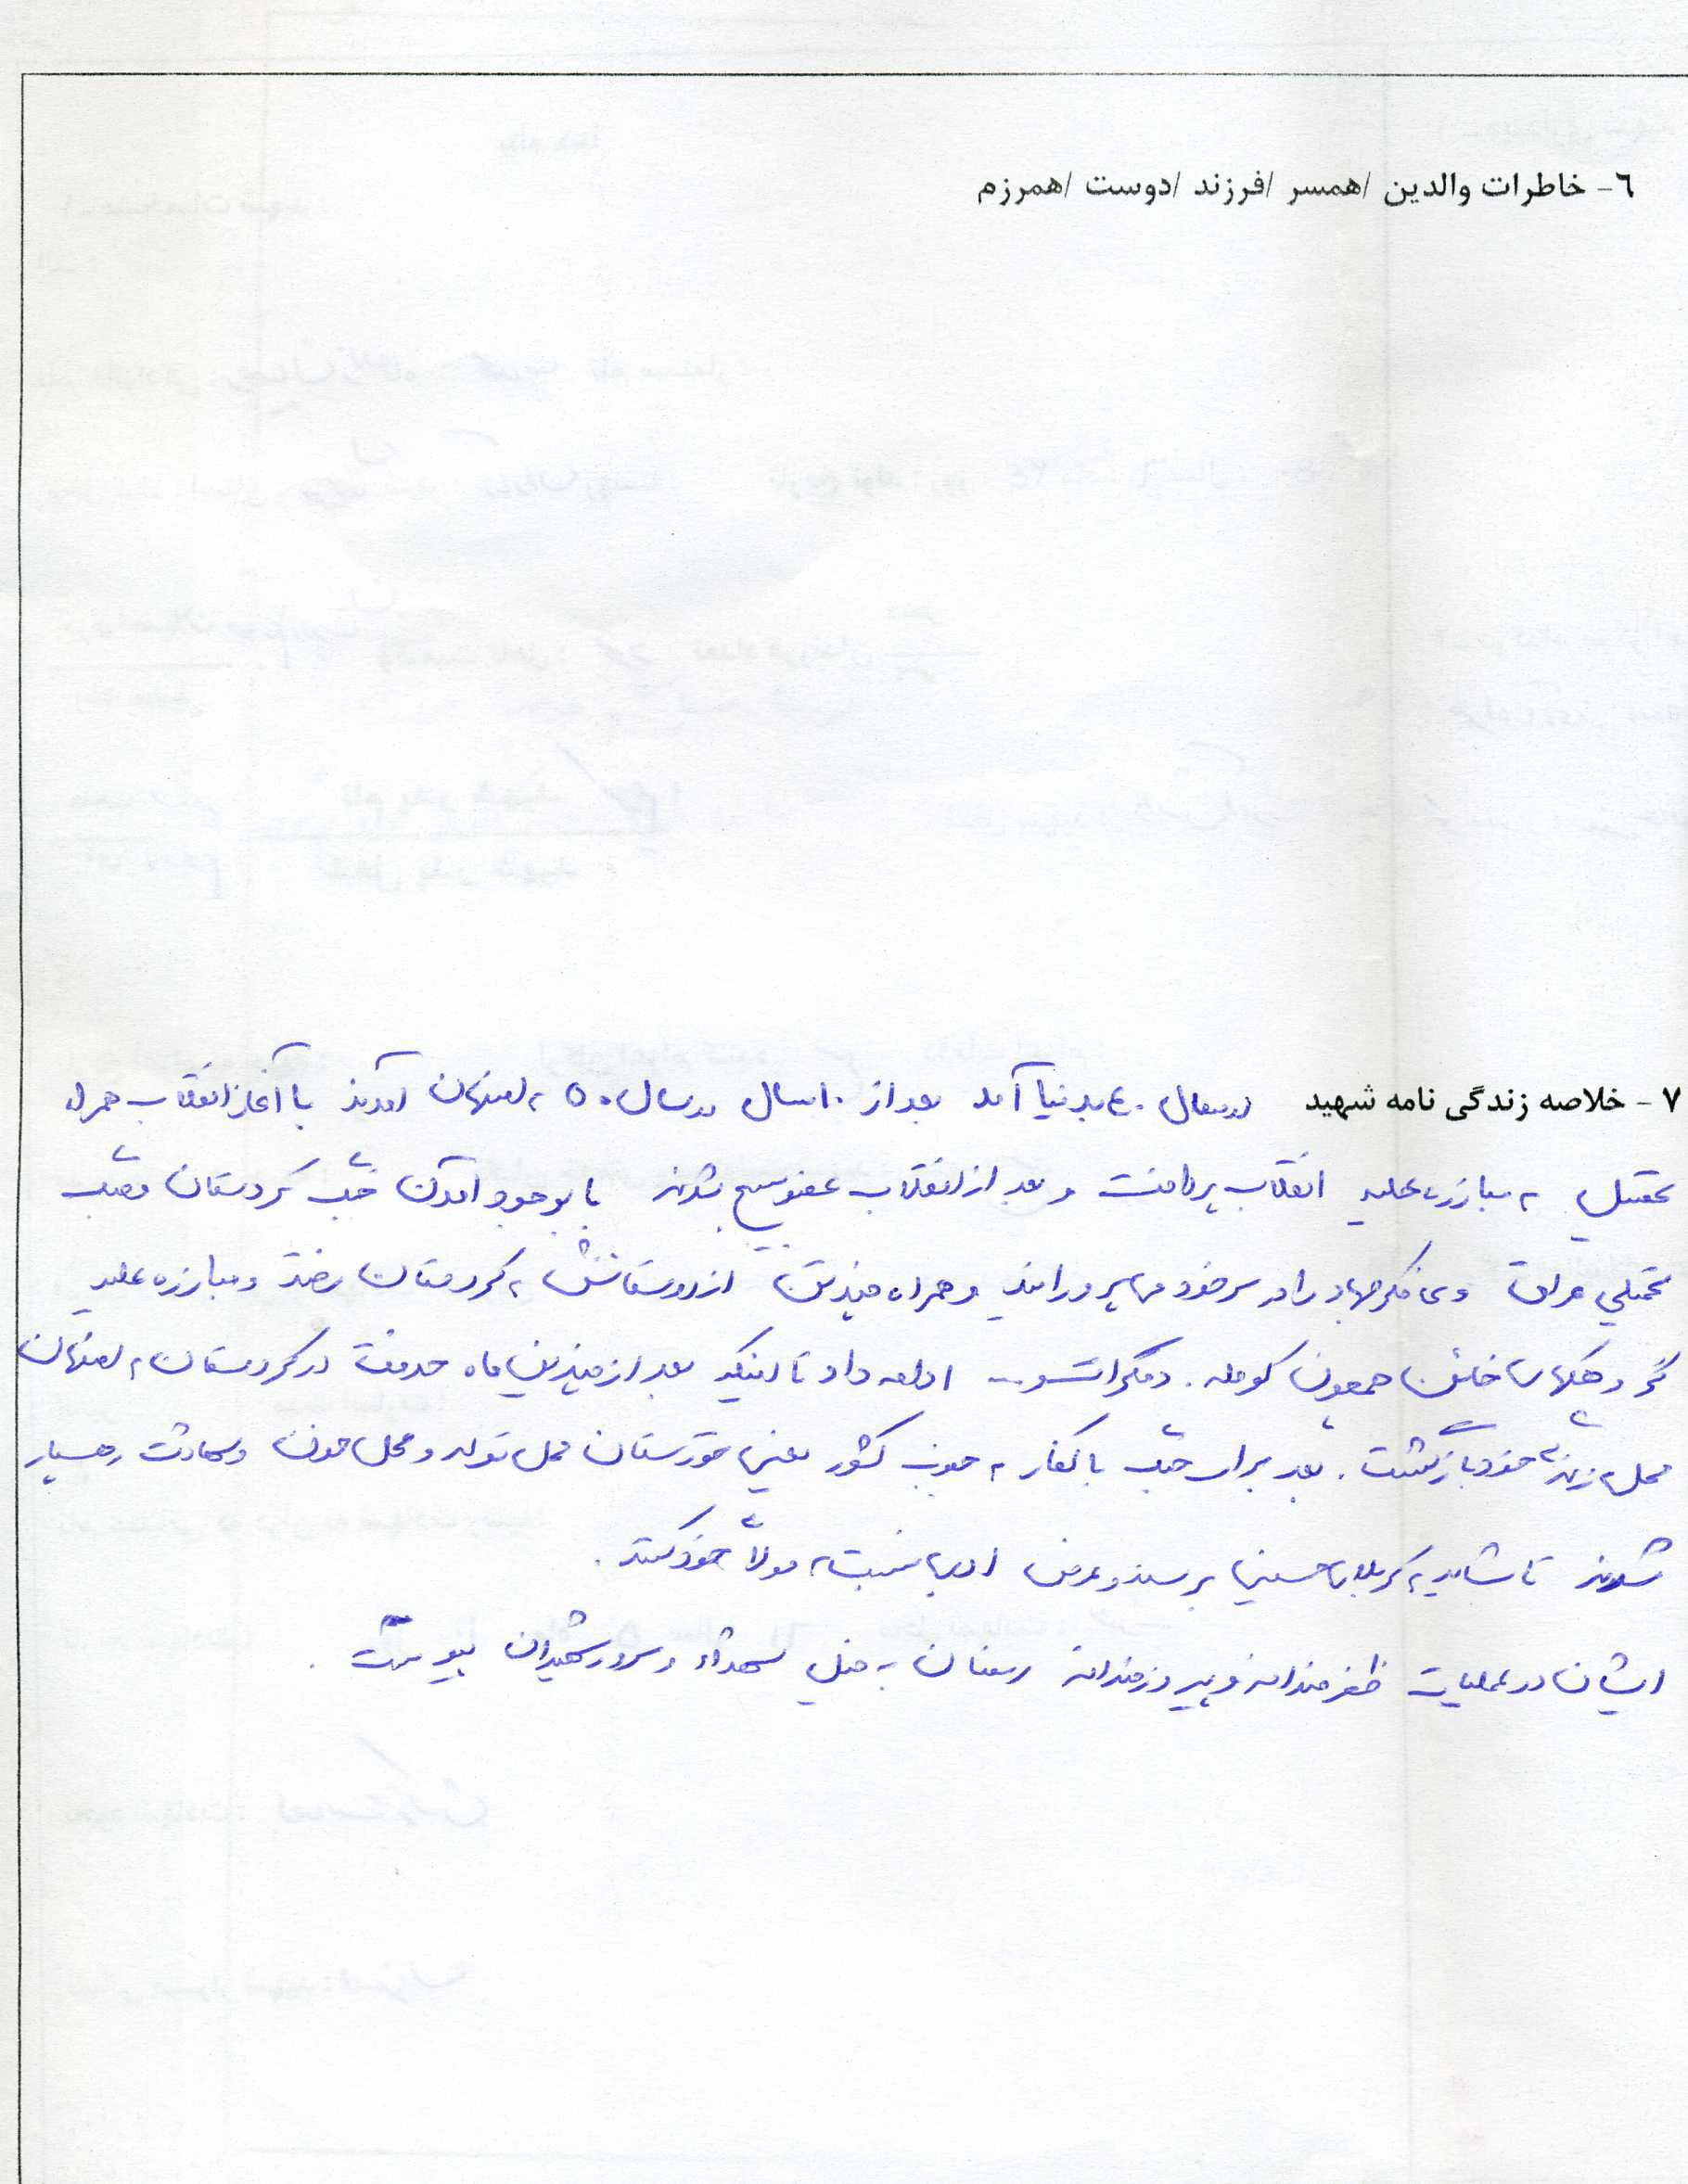 ٦- خاطرات والدین /همسر /فرزند /دوست /همرزم
٧- خلاصه زندگی نامه شهید در سال ٤٠ بدنیا آمد بعد از ١٠ سال در سال ٥٠ به اصفهان آمدند با آغاز انقلاب همراه
تحصیل به مبارزه علیه انقلاب پرداخت و بعد از انقلاب عضو بسیج شدند با بوجود آمدن جنگ کردستان و جنگ
تحمیلی عراق وی فکر جهاد را در سر خود می پروراند و همراه چند تن از دوستانش به کردستان رفتند و مبارزه علیه
گروهکهای خائن همچون کومله. دمکرات و... ادامه داد تا اینکه بعد از چندین ماه خدمت در کردستان به اصفهان
محل زندگی خود بازگشت. بعد برای جنگ با کفار به جنوب کشور یعنی خوزستان محل تولد و محل خون و شهادت رهسپار
شدند تا شاید به کربلای حسینی برسند و عرض ادب نسبت به مولای خود کنند.
ایشان در عملیات ظفرمندانه و پیروزمندانه رمضان به خیل شهداء و سرور شهیدان پیوست.